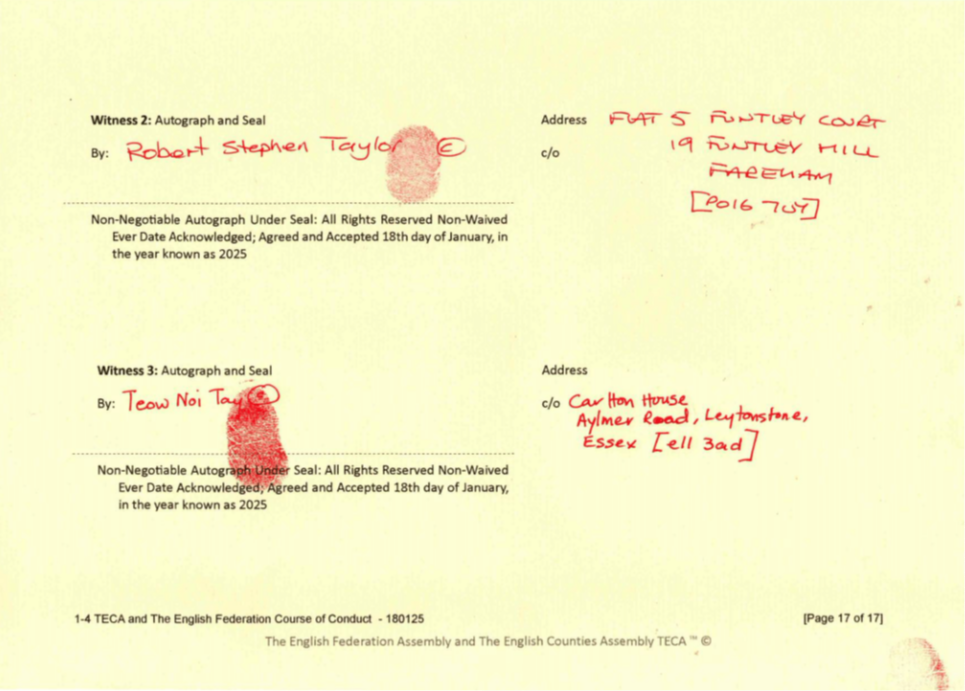 Witness 2: Autograph and Seal
By: Robert Stephen Taylor ©
Address FLAT 5 FUNTLEY COURT
c/o 19 FUNTLEY HILL
FAREHAM
[PO16 7UY]
Non-Negotiable Autograph Under Seal: All Rights Reserved Non-Waived
Ever Date Acknowledged; Agreed and Accepted 18th day of January, in
the year known as 2025
Witness 3: Autograph and Seal
By: Teow Noi Tay ©
Address
c/o Carlton House
Aylmer Road, Leytonstone,
Essex [e11 3ad]
Non-Negotiable Autograph Under Seal: All Rights Reserved Non-Waived
Ever Date Acknowledged; Agreed and Accepted 18th day of January,
in the year known as 2025
1-4 TECA and The English Federation Course of Conduct - 180125
[Page 17 of 17]
The English Federation Assembly and The English Counties Assembly TECA ™ ©